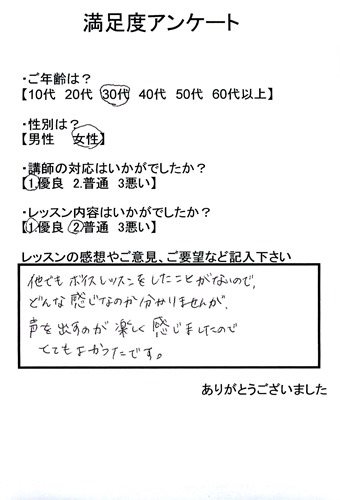 満足度アンケート
・ご年齢は？
【10代 20代 30代 40代 50代 60代以上】
・性別は？
【男性 女性】
・講師の対応はいかがでしたか？
【1.優良 2.普通 3悪い】
・レッスン内容はいかがでしたか？
【1.優良 2普通 3悪い】
レッスンの感想やご意見、ご要望など記入下さい
他でもボイスレッスンをしたことがないので、
どんな感じなのか分かりませんが、
声を出すのが楽しく感じましたので
とてもよかったです。
ありがとうございました